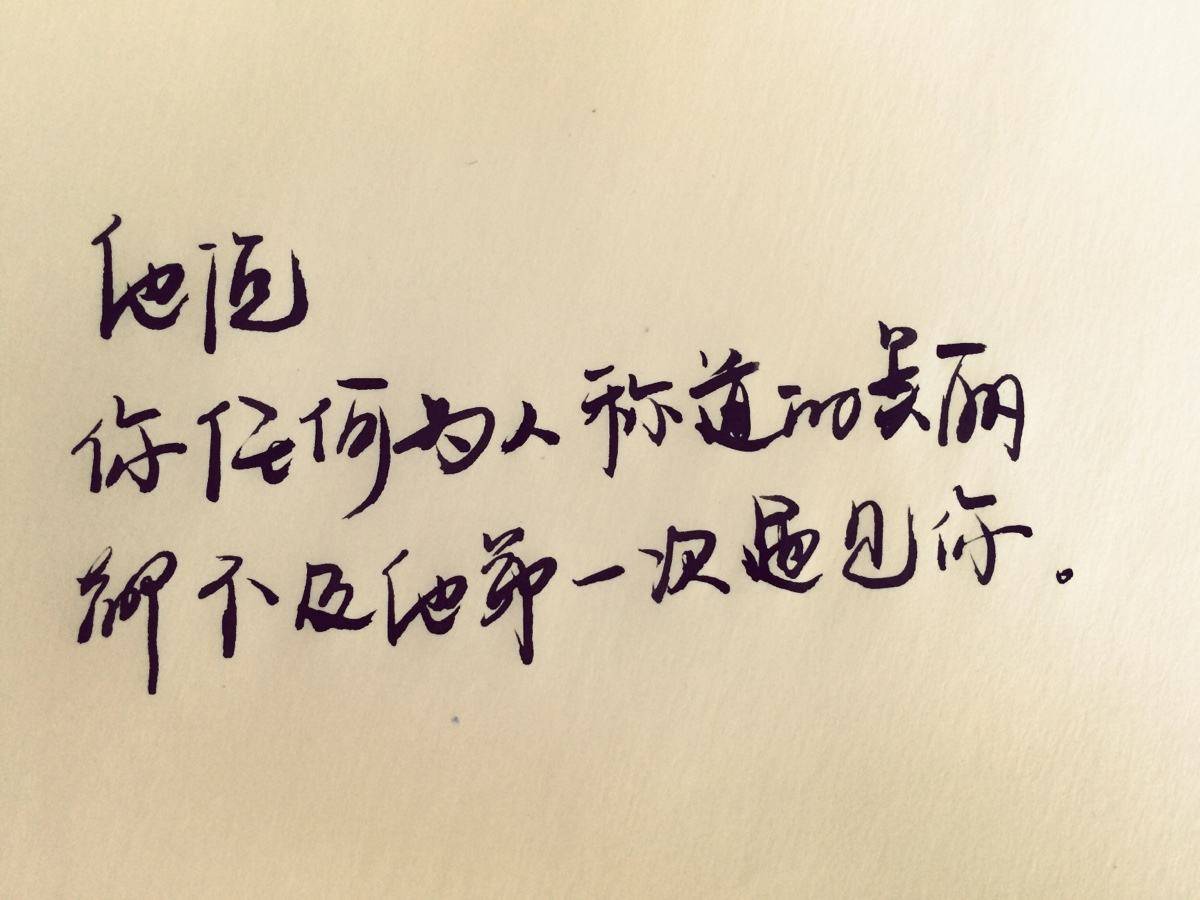 他说
你任何为人称道的美丽
都不及他第一次遇见你。